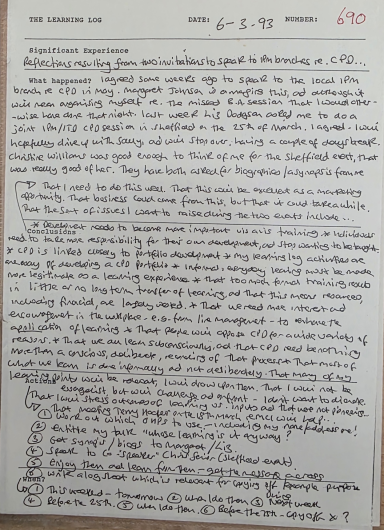 THE LEARNING LOG DATE: 6-3.93 NUMBER: 690
Significant Experience
Reflections resulting from two invitations to speak to IPM branches re. CPD...
What happened? I agreed some weeks ago to speak to the local IPM
branch re CPD in May. Margaret Johnson is arranging this, and although it
was near organising myself re. the missed B.A session that I would other-
wise have done that night. Last week Liz Dodgson asked me to do a
joint IPM/ITD CPD session in Sheffield on the 25th of March. I agreed. I will
hopefully drive up with Sally, and will stop over, having a couple of days break.
Christine Williams was good enough to think of me for the Sheffield event, that
was really good of her. They have both asked for biographies/synopsis from me
That I need to do this well. That this will be excellent as a marketing
opportunity. That business could come from this, but that it could take a while.
That the sort of issues I want to raise during the two events include...
Conclusions
* Development needs to become more important vis a vis training * Individuals
need to take more responsibility for their own development, and stop waiting to be taught
* CPD is linked closely to portfolio development * my learning log activities are
an example of developing a CPD portfolio * Informal everyday learning must be made
more legitimate as a learning experience * That too much formal training results
in little or no long term transfer of learning, and that this means resources,
including financial, are largely wasted. * That we need more interest and
encouragement in the workplace - e.g. from line management - to enhance the
application of learning * That people will oppose CPD for a wide variety of
reasons * That we all learn subconsciously, and that CPD need be nothing
more than a conscious, deliberate, reworking of that process * That most of
what we learn is done informally and not deliberately. That many of my
learning points will be relevant. I will draw upon them. That I will not be
Actions
evangelist but will challenge and confront - I don't want to alienate.
That I will stress outcomes of learning vs. inputs and that we not
① That meeting Terry Hooker on the 18th March, I will help
work out which OHPs to use - including my name address one!
② Entitle my talk "whose learning is it anyway?"
③ Get synopsis / biogs to Margaret / Liz.
④ Speak to Co-"speaker" Christine (Sheffield event).
⑤ Enjoy them and learn from them - get the message across
⑥ Write a log sheet which is relevant for copying for example purpose
When?
① This weekend - tomorrow ② When I do them ③ Next week
④ Before the 25th. ⑤ When I do them. ⑥ Before the 25th - copy off